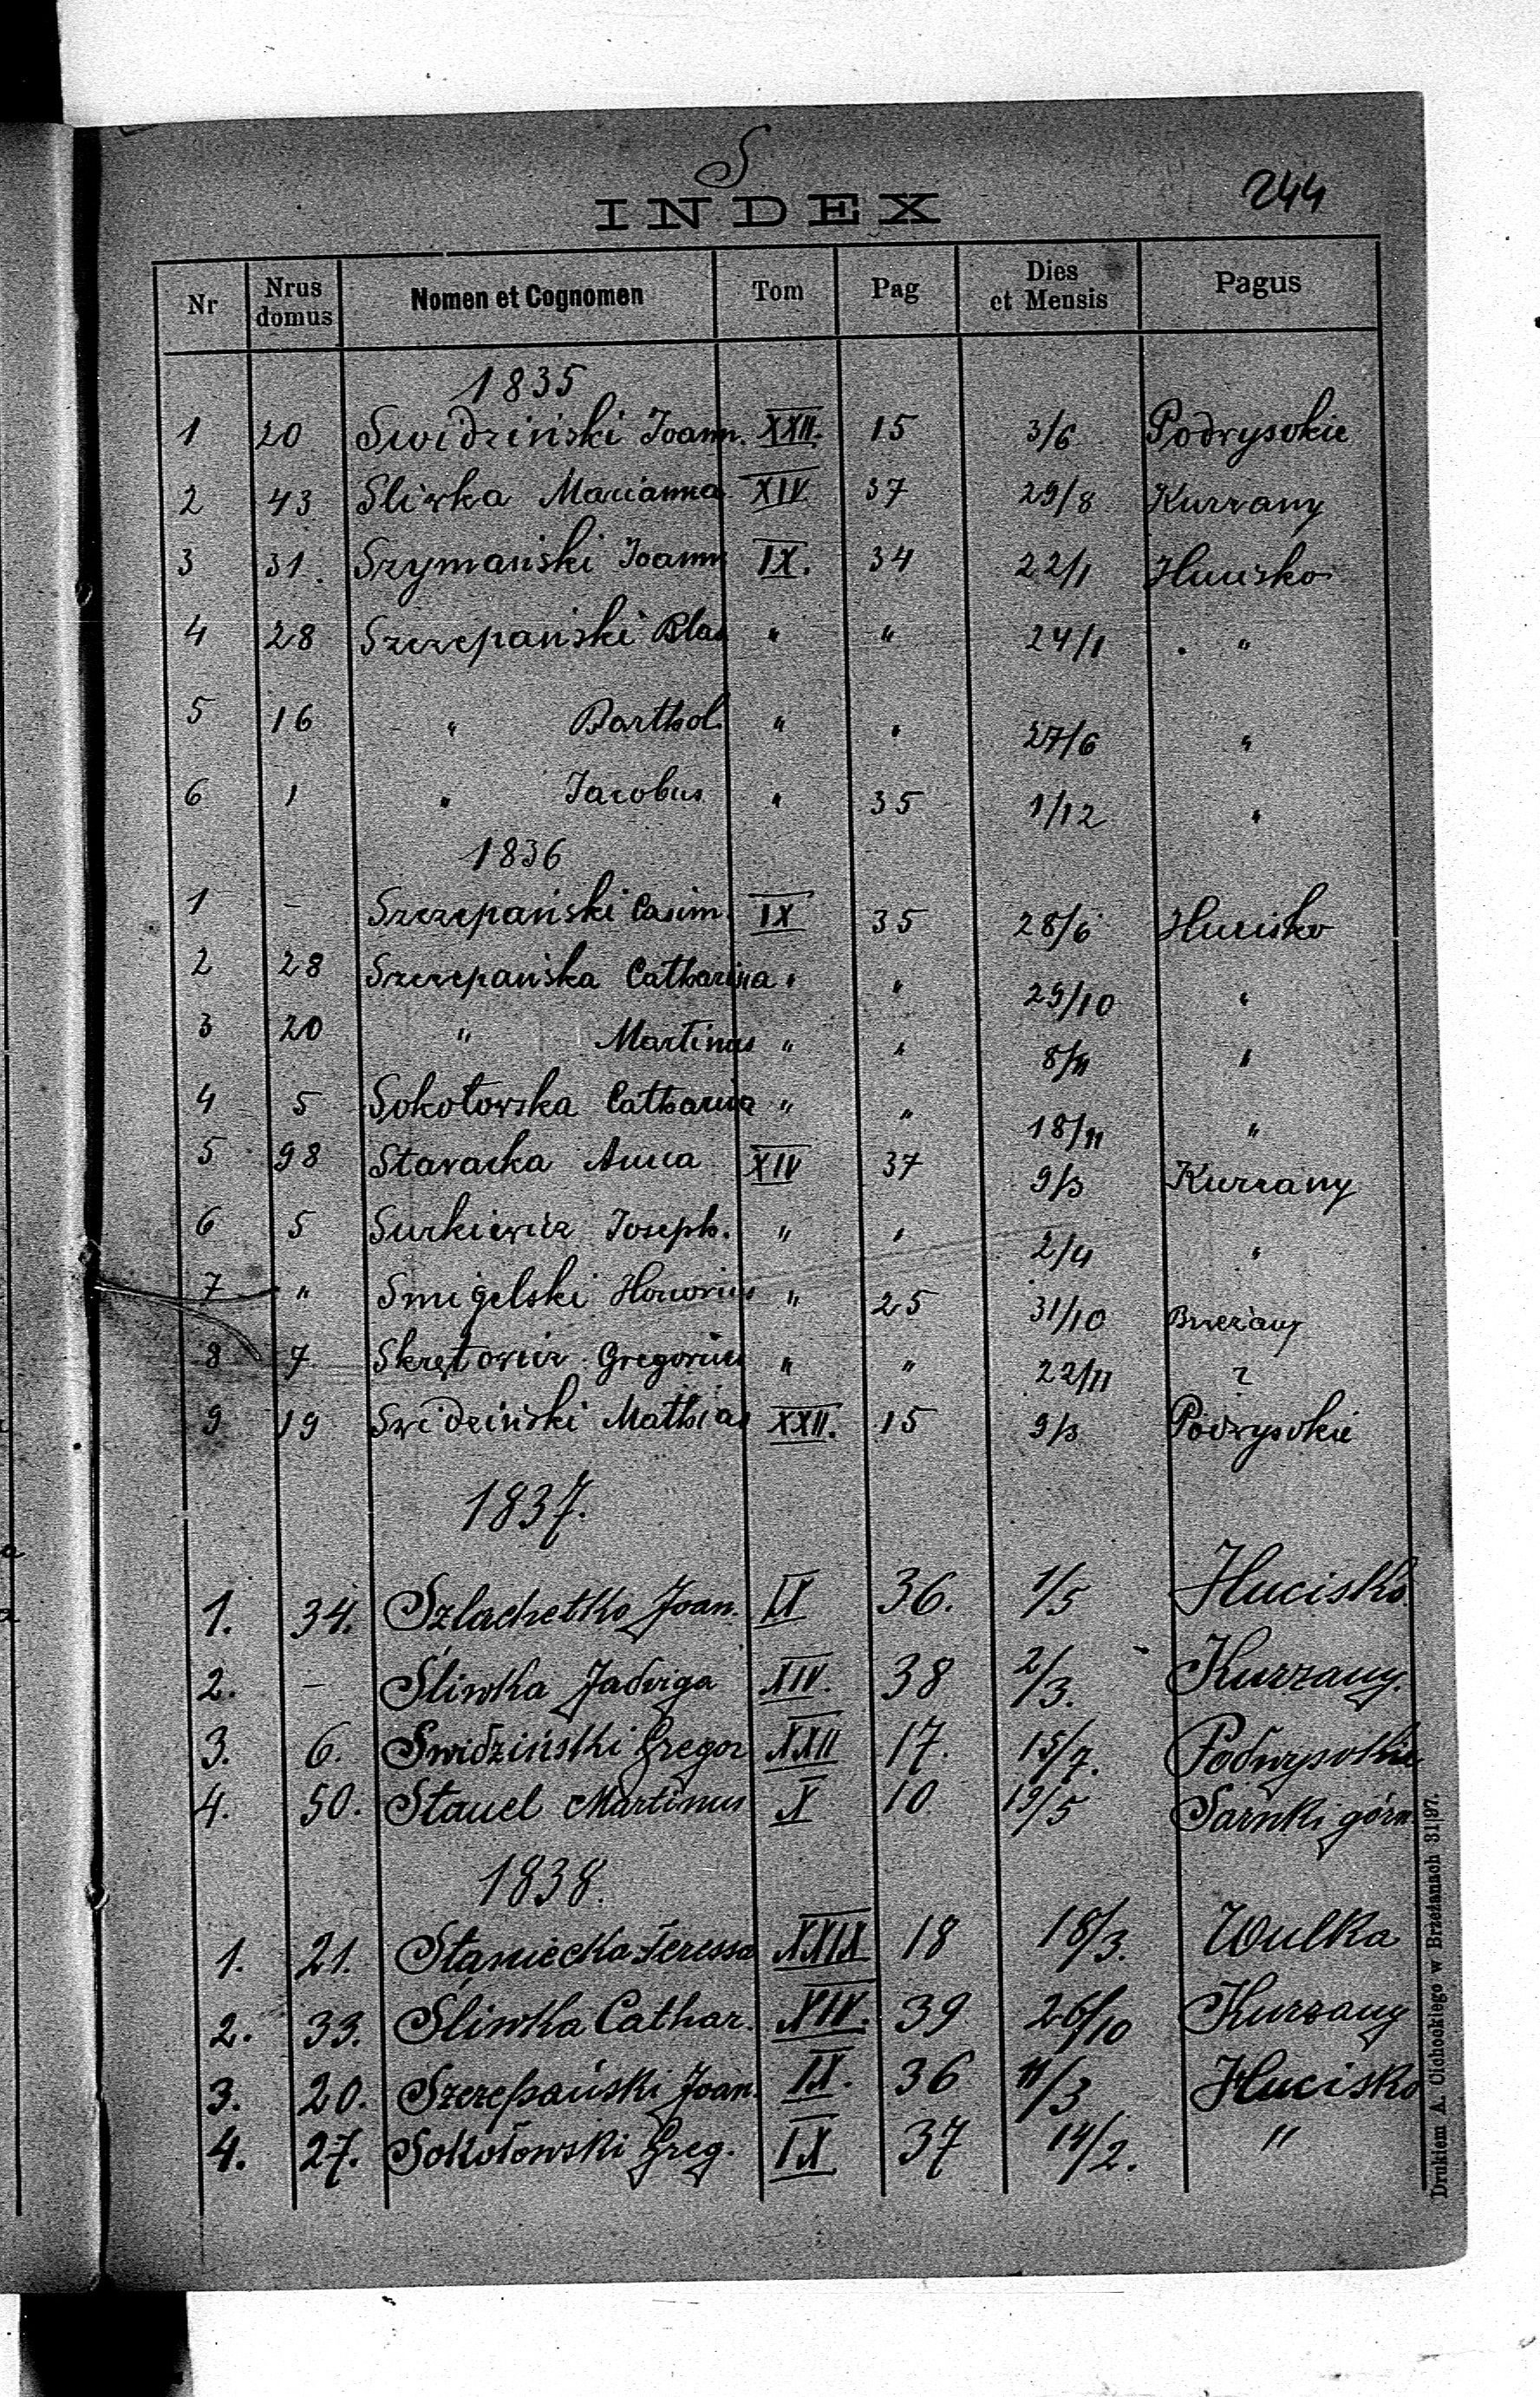 S
INDEX
244
Nr Nrus domus Nomen et Cognomen Tom Pag Dies et Mensis Pagus
1835
1 20 Swidziński Joann. XXII. 15 3/6 Podwysokie
2 43 Sliwka Marianna XIV 37 29/8 Kurzany
3 31. Szymański Joann IX. 34 22/1 Hucisko
4 28 Szczepański Blas " " 24/1 "
5 16 " Barthol. " " 27/6 "
6 1 " Jacobus " 35 1/12 "
1836
1 - Szczepański Casim. IX 35 28/6 Hucisko
2 28 Szczepańska Catharina " " 29/10 "
3 20 " Martinus " " 8/11 "
4 5 Sokołowska Catharina " " 18/11 "
5 98 Stavacka Anna XIV 37 9/3 Kurzany
6 5 Surkiewicz Joseph. " " 2/4 "
7 " Smigelski Honorius " 25 31/10 Brzeżany
8 7 Skrętowicz Gregorius " " 22/11
9 19 Swidziński Mathias XXII. 15 9/3 Podwysokie
1837.
1. 34. Szlachetko Joan. IX 36. 1/5 Hucisko
2. - Śliwka Jadviga XIV. 38 2/3. Kurzany.
3. 6. Swidziński Gregor XXII 17. 15/7. Podwysokie
4. 50. Stauel Martinus X 10 19/5 Sarnki górn
1838.
1. 21. Staniecka Teressa XXIX 18 18/3. Wulka
2. 33. Śliwka Cathar. XIV. 39 26/10 Kurzany
3. 20. Szczepański Joan. IX. 36 11/3 Hucisko
4. 27. Sokołowski Greg. IX 37 14/2. "
Drukiem A. Cichockiego w Brzeżanach 31|97.